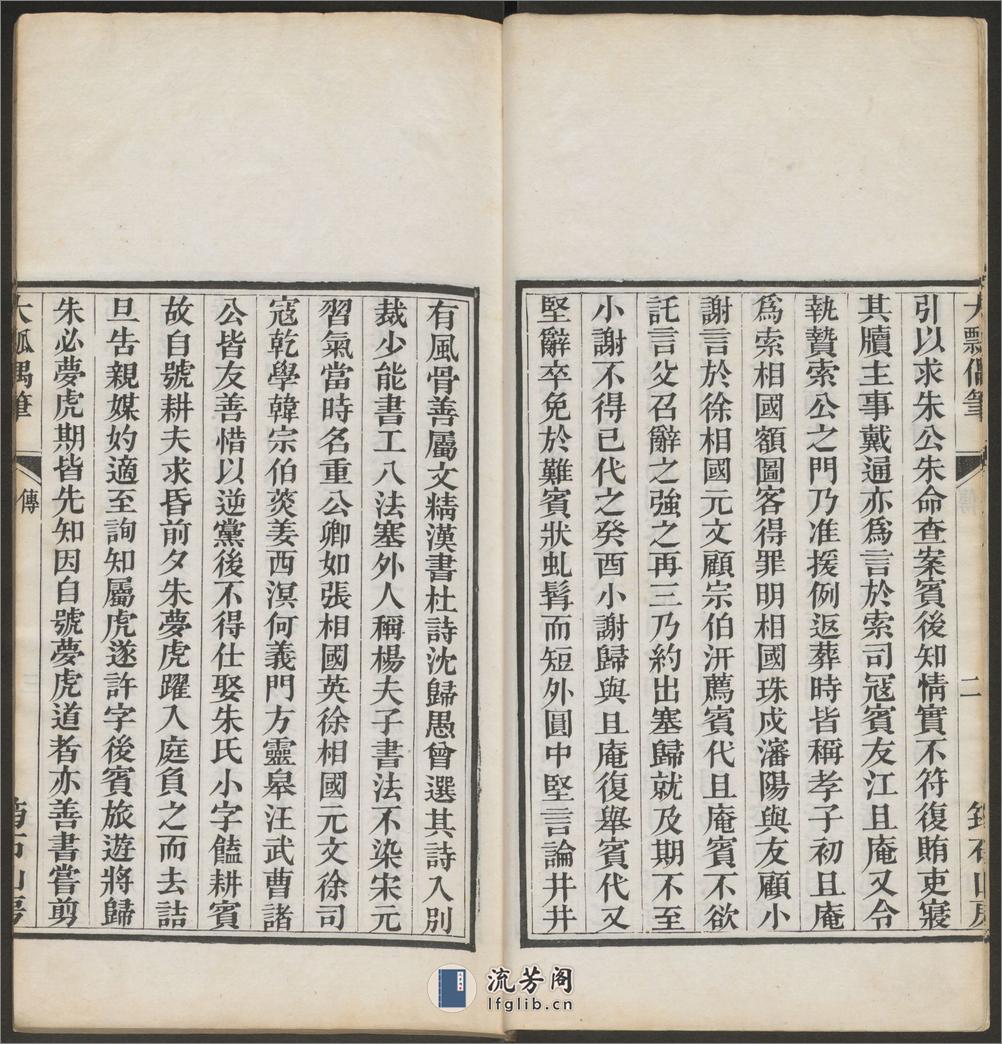 大瓢偶筆
二
引以求朱公朱命查案賓後知情實不符復賄吏寢
其牘主事戴通亦爲言於索司寇賓友江且庵又令
執贄索公之門乃准援例返葬時皆稱孝子初且庵
爲索相國額圖客得罪明相國珠戍瀋陽與友顧小
謝言於徐相國元文顧宗伯汧薦賓代且庵賓不欲
託言父召辭之強之再三乃約出塞歸就及期不至
小謝不得已代之癸酉小謝歸與且庵復舉賓代又
堅辭卒免於難賓狀虬髯而短外圓中堅言論井井
有風骨善屬文精漢書杜詩沈歸愚曾選其詩入別
裁少能書工八法塞外人稱楊夫子書法不染宋元
習氣當時名重公卿如張相國英徐相國元文徐司
寇乾學韓宗伯菼姜西溟何義門方靈皋汪武曹諸
公皆友善惜以逆黨後不得仕娶朱氏小字饁耕賓
故自號耕夫求昏前夕朱夢虎躍入庭負之而去詰
旦告親媒妁適至詢知屬虎遂許字後賓旅遊將歸
朱必夢虎期皆先知因自號夢虎道者亦善書嘗剪
大瓢偶筆
傳
流芳阁
lfglib.cn